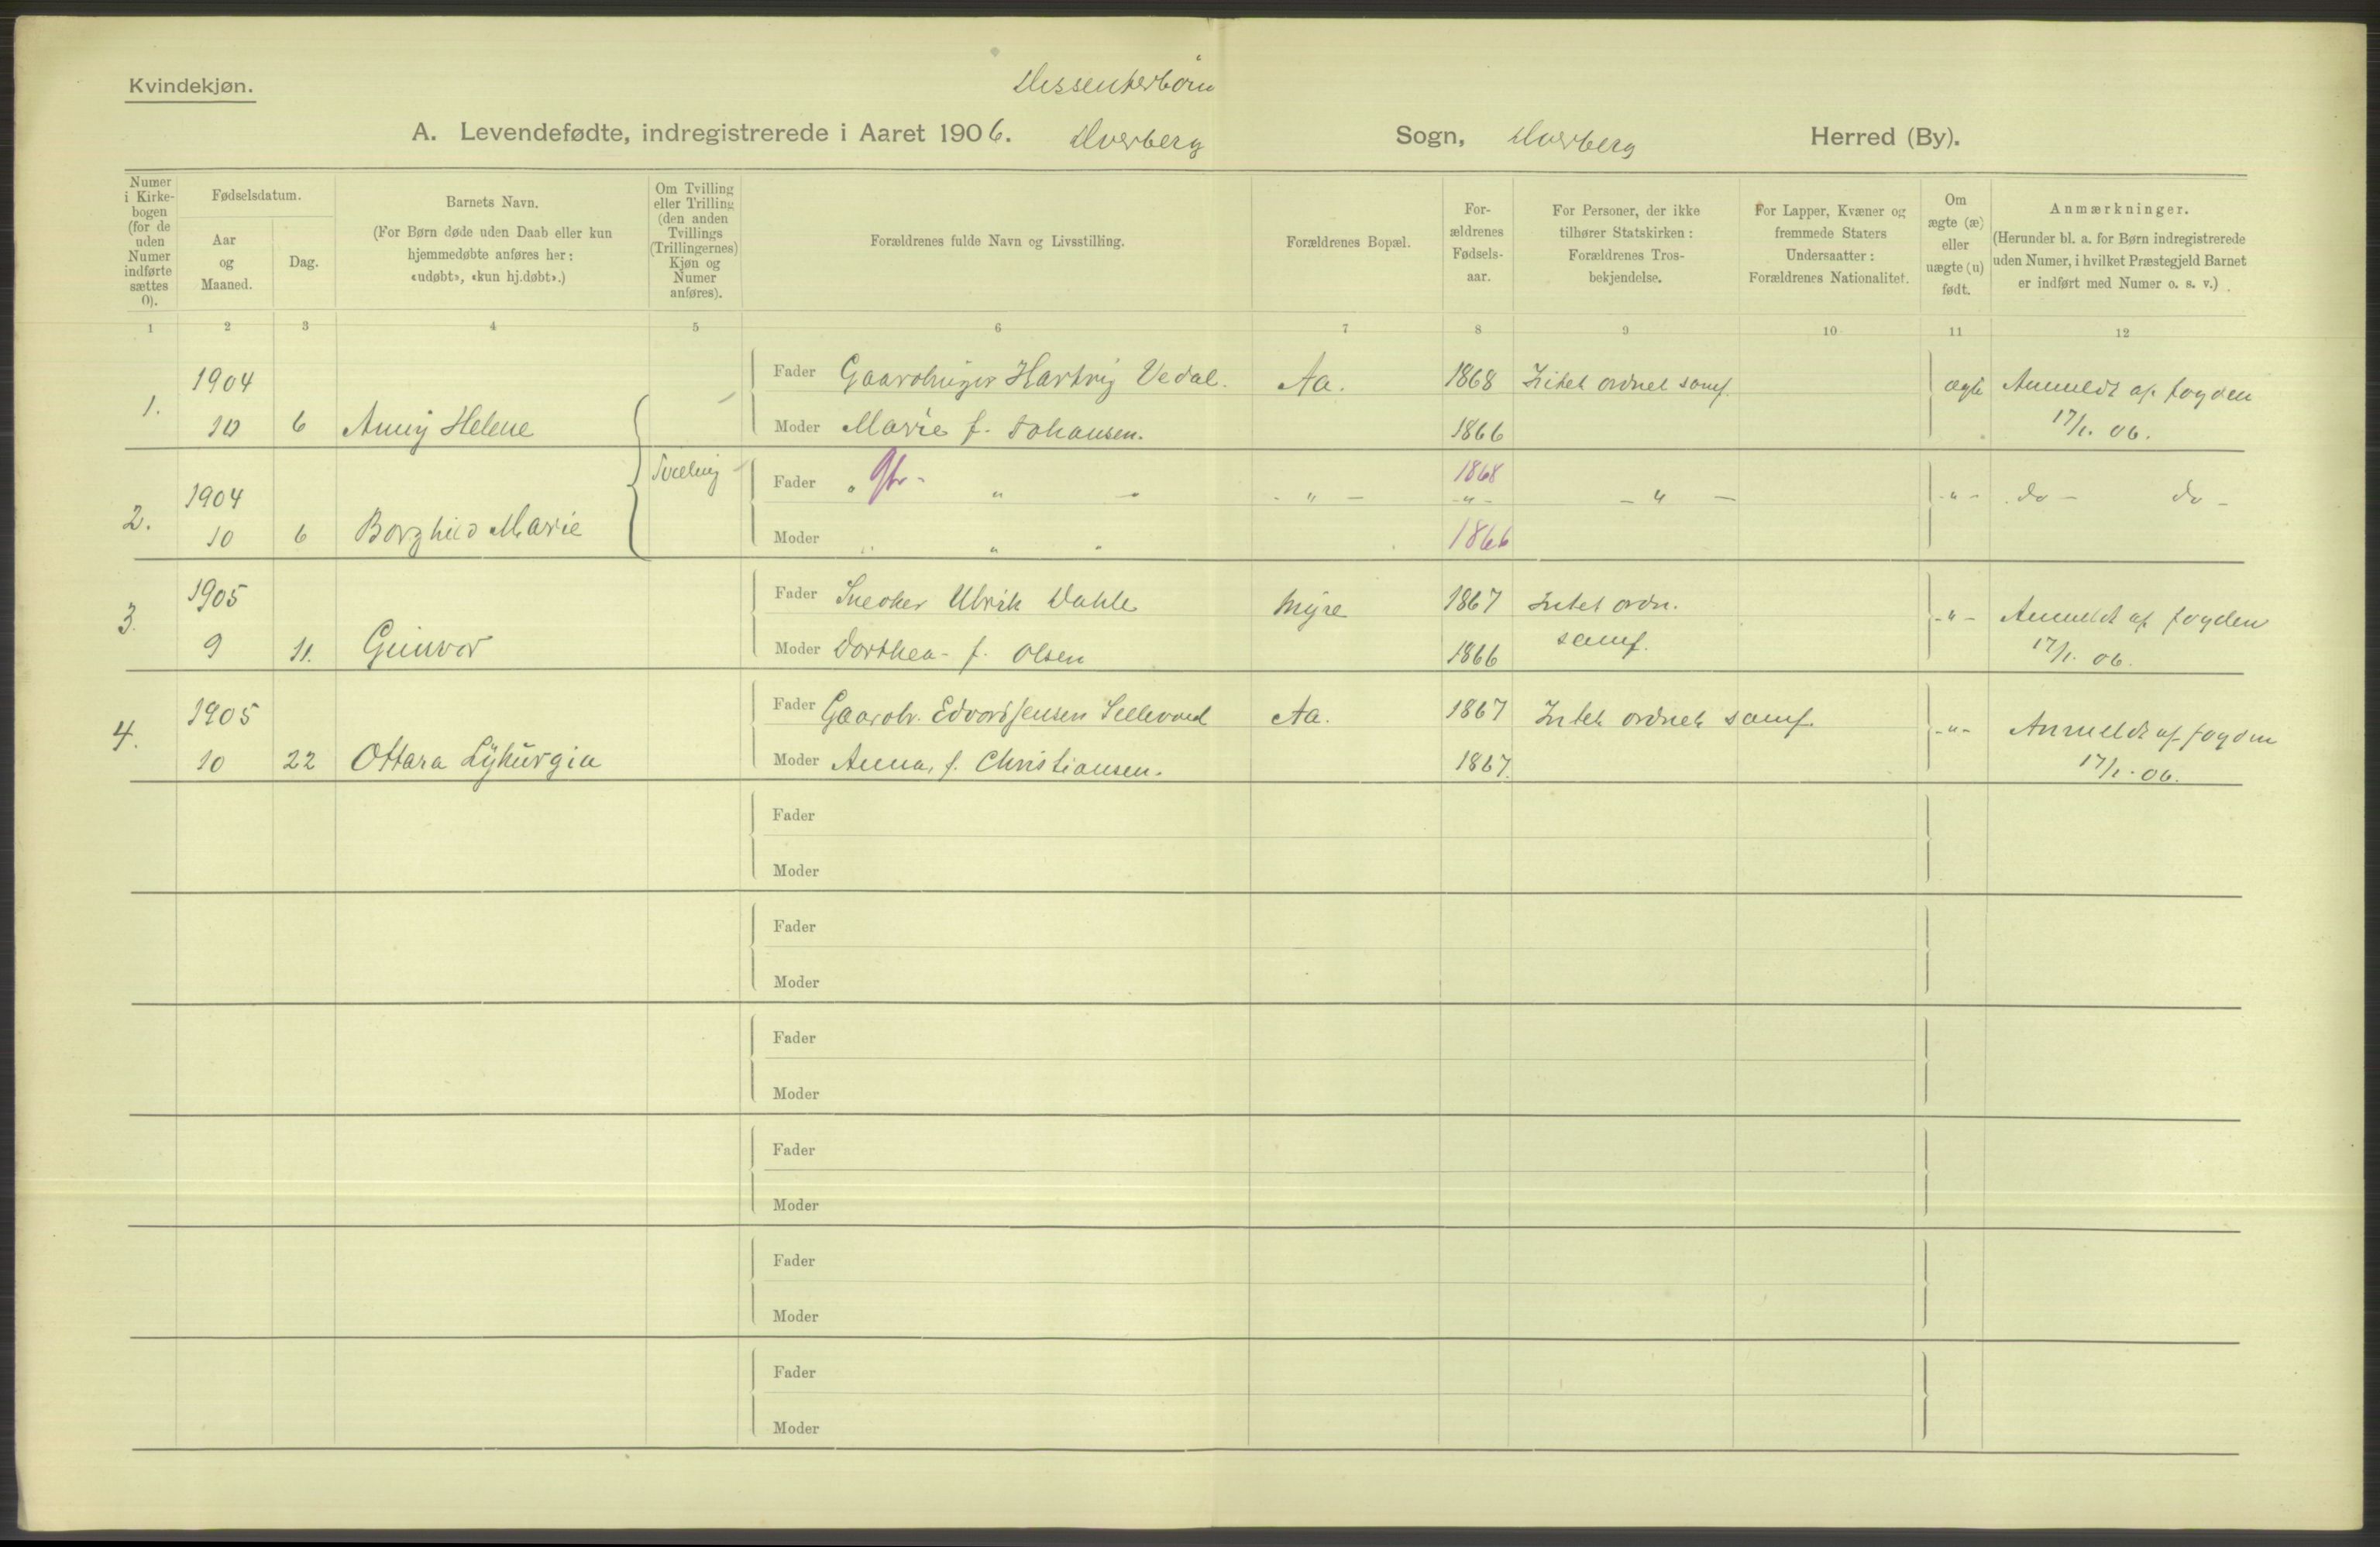 Kvindekjøn.
Dissenterbørn
A. Levendefødte, indregistrerede i Aaret 1906. Dverberg Sogn, Dverberg Herred (By).
Numer i Kirkebogen (for de uden Numer indførte sættes 0).
Fødselsdatum.
Aar og Maaned.
Dag.
Barnets Navn.
(For Børn døde uden Daab eller kun
hjemmedøbte anføres her:
«udøbt», «kun hj.døbt».)
Om Tvilling
eller Trilling
(den anden
Tvillings
(Trillingernes)
Kjøn og
Numer
anføres).
Forældrenes fulde Navn og Livsstilling.
Forældrenes Bopæl.
For-
ældrenes
Fødsels-
aar.
For Personer, der ikke
tilhører Statskirken:
Forældrenes Tros-
bekjendelse.
For Lapper, Kvæner og
fremmede Staters
Undersaatter:
Forældrenes Nationalitet.
Om
ægte (æ)
eller
uægte (u)
født.
Anmærkninger.
(Herunder bl. a. for Børn indregistrerede
uden Numer, i hvilket Præstegjeld Barnet
er indført med Numer o. s. v.)
1 2 3 4 5 6 7 8 9 10 11 12
1904 Fader Gaardbruger Hartvig Vedal. Aa. 1868 Intet ordnet samf. ægte Anmeldt af fogden
1. 10 6 Anny Helene Moder Marie f. Johansen. 1866 17/1. 06.
Tvilling
1904 Fader " Gbr. " - " - 1868 - " - - " - - " - do - do -
2. 10 6 Borghild Marie Moder " " " 1866
1905 Fader Snedker Ulrik Dahle Myre 1867 Intet ordn. - " - Anmeldt af fogden
samf.
3. 9 11. Gunvor Moder Dorthea f. Olsen 1866 17/1. 06.
1905 Fader Gaardbr. Edvard Jensen Sellevoed Aa. 1867 Intet ordnet samf. - " - Anmeldt af fogden
4. 10 22 Ottara Lykurgia Moder Anna, f. Christiansen. 1867. 17/1. 06.
Fader
Moder
Fader
Moder
Fader
Moder
Fader
Moder
Fader
Moder
Fader
Moder